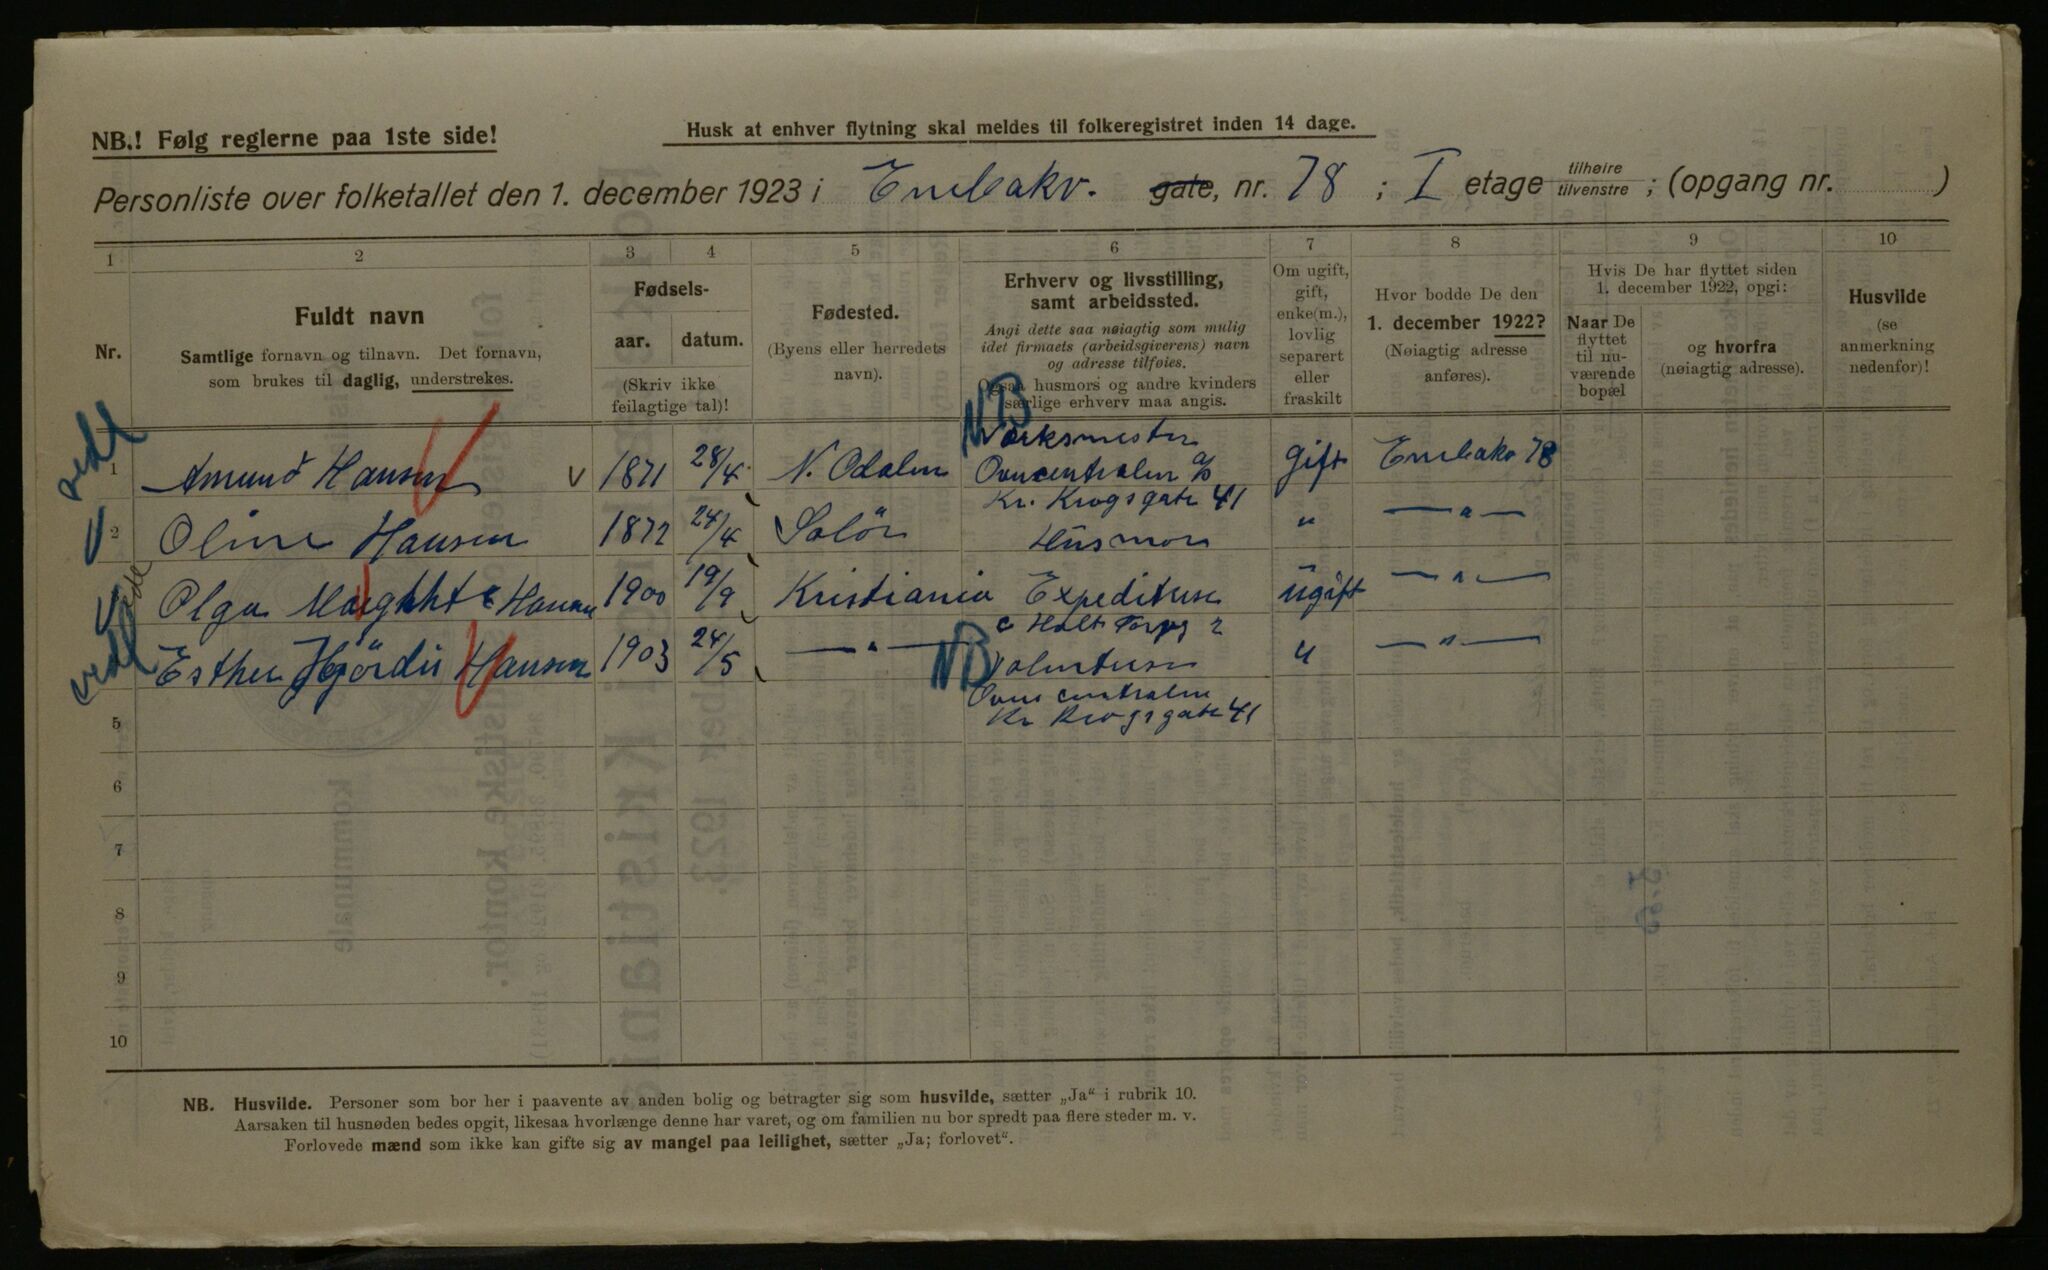 NB.! Følg reglerne paa 1ste side!
Husk at enhver flytning skal meldes til folkeregistret inden 14 dage.
Personliste over folketallet den 1. december 1923 i Enebakv. gate, nr. 78 ; I etage tilhøire tilvenstre ; (opgang nr. )
1 2 3 4 5 6 7 8 9 10
Nr.
Fuldt navn
Samtlige fornavn og tilnavn. Det fornavn,
som brukes til daglig, understrekes.
Fødsels-
aar. datum.
(Skriv ikke
feilagtige tal)!
Fødested.
(Byens eller herredets
navn).
Erhverv og livsstilling,
samt arbeidssted.
Angi dette saa nøiagtig som mulig
idet firmaets (arbeidsgiverens) navn
og adresse tilføies.
Ogsaa husmors og andre kvinders
særlige erhverv maa angis.
Om ugift,
gift,
enke(m.),
lovlig
separert
eller
fraskilt
Hvor bodde De den
1. december 1922?
(Nøiagtig adresse
anføres).
Hvis De har flyttet siden
1. december 1922, opgi:
Naar De
flyttet
til nu-
værende
bopæl
og hvorfra
(nøiagtig adresse).
Husvilde
(se
anmerkning
nedenfor)!
NB
Værksmester
1 Amund Hansen V 1871 28/4 N. Odalen Ovncentralen A/S gift Enebakv 78
Kr. Krogsgate 41
2 Oline Hansen 1872 24/4 Solör Husmor " —"—
Olga Margithe Hansen 1900 19/9 Kristiania Expeditrise ugift —"—
Holt Torvg 2
Esther Hjördis Hansen 1903 24/5 —"— NB Volontrise " —"—
Ovns centralen
5 Kr Krogsgate 41
6
7
8
9
10
NB. Husvilde. Personer som bor her i paavente av anden bolig og betragter sig som husvilde, sætter „Ja“ i rubrik 10.
Aarsaken til husnøden bedes opgit, likesaa hvorlænge denne har varet, og om familien nu bor spredt paa flere steder m. v.
Forlovede mænd som ikke kan gifte sig av mangel paa leilighet, sætter „Ja; forlovet“.